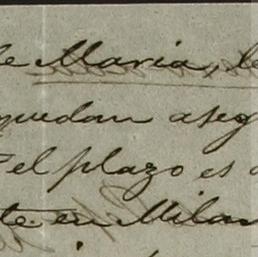 de Maria, le
quedan aseg
el plazo es
te en Milan